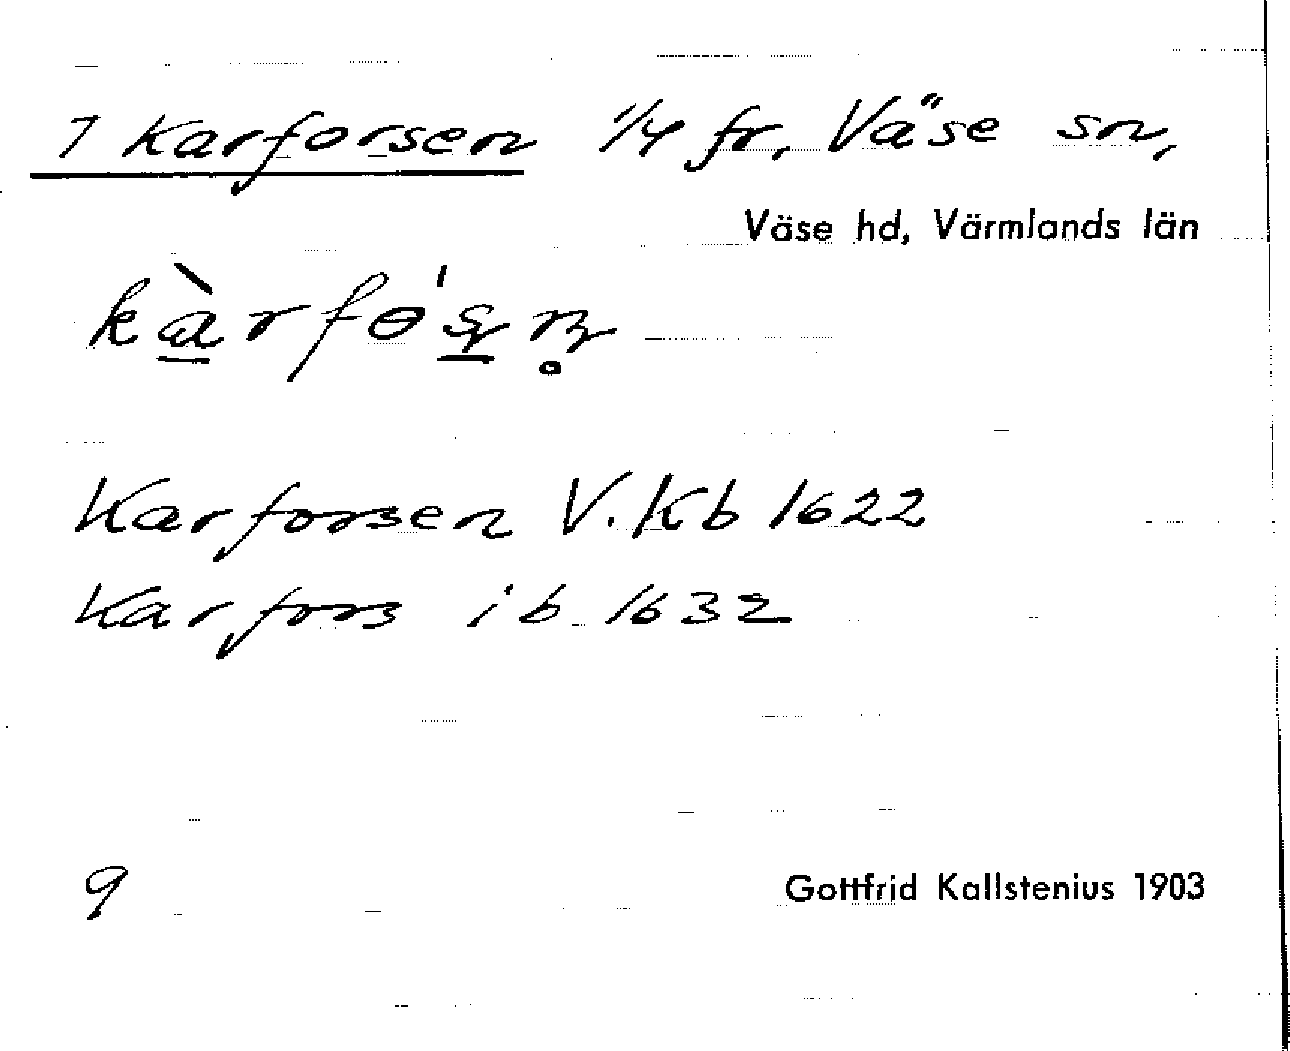 7 Karforsen 1/4 fr, Väse sn,
Väse hd, Värmlands län
kàrfɵ́ʂn̥
Karforsen V. Kb 1622
Karfors ib. 1632
9
Gottfrid Kallstenius 1903